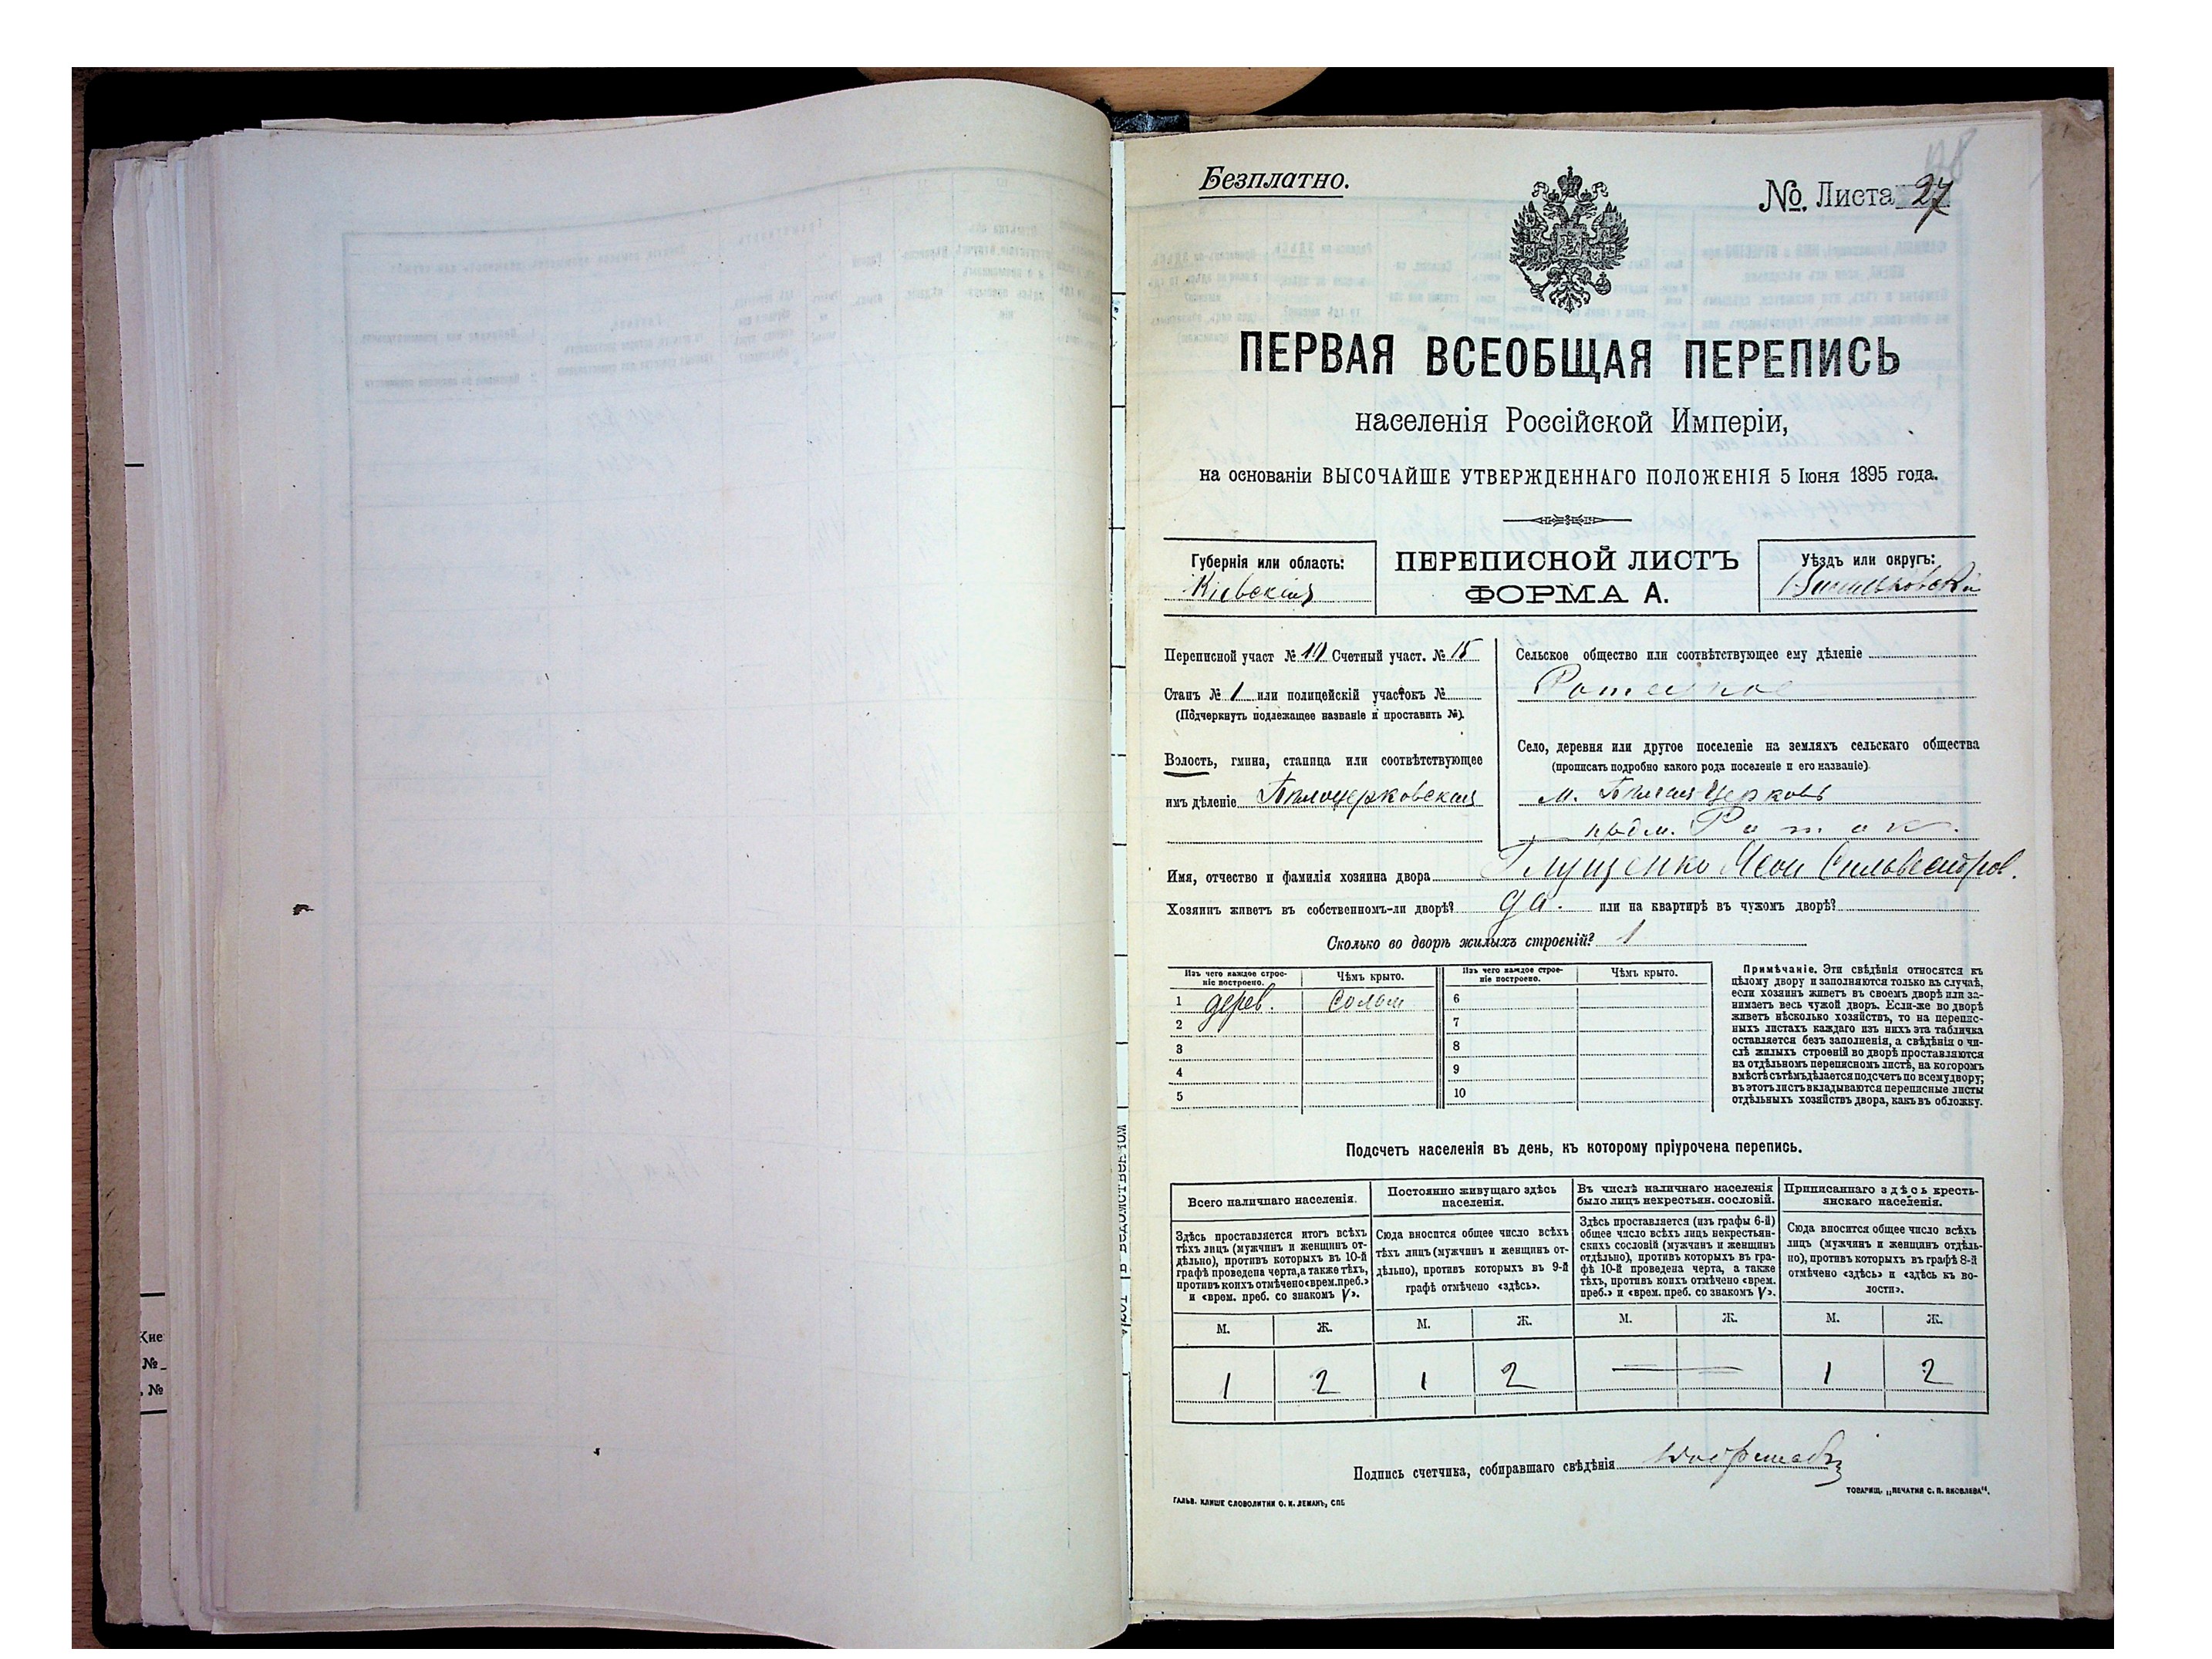 Безплатно.
№ Листа 27
ПЕРВАЯ ВСЕОБЩАЯ ПЕРЕПИСЬ
населенія Россійской Имперіи,
на основаніи ВЫСОЧАЙШЕ УТВЕРЖДЕННАГО ПОЛОЖЕНІЯ 5 Іюня 1895 года.
Губернія или область:
Кіевская
ПЕРЕПИСНОЙ ЛИСТЪ
ФОРМА А.
Уѣздъ или округъ:
Васильковскій
Переписной участ № 10 Счетный участ. № 15
Станъ № 1 или полицейскій участокъ №
(Подчеркнуть подлежащее названіе и проставить №).
Волость, гмина, станица или соотвѣтствующее
имъ дѣленіе Бѣлоцерковская
Сельское общество или соотвѣтствующее ему дѣленіе
Село, деревня или другое поселеніе на земляхъ сельскаго общества
(прописать подробно какого рода поселеніе и его названіе).
м. Бѣлая Церковь
Имя, отчество и фамилія хозяина двора Глущенко Сильвестров.
Хозяинъ живетъ въ собственномъ-ли дворѣ? да. или на квартирѣ въ чужомъ дворѣ?
Сколько во дворѣ жилыхъ строеній? 1
Изъ чего каждое строе-
ніе построено.
Чѣмъ крыто.
Изъ чего каждое строе-
ніе построено.
Чѣмъ крыто.
1 дерев. солом 6
2 7
3 8
4 9
5 10
Примѣчаніе. Эти свѣдѣнія относятся къ
цѣлому двору и заполняются только въ случаѣ,
если хозяинъ живетъ въ своемъ дворѣ или за-
нимаетъ весь чужой дворъ. Если-же во дворѣ
живетъ нѣсколько хозяйствъ, то на перепис-
ныхъ листахъ каждаго изъ нихъ эта табличка
оставляется безъ заполненія, а свѣдѣнія о чи-
слѣ жилыхъ строеній во дворѣ проставляются
на отдѣльномъ переписномъ листѣ, на которомъ
вмѣстѣ съ тѣмъ дѣлается подсчетъ по всему двору;
въ этотъ листъ вкладываются переписные листы
отдѣльныхъ хозяйствъ двора, какъ въ обложку.
Подсчетъ населенія въ день, къ которому пріурочена перепись.
Всего наличнаго населенія.
Здѣсь проставляется итогъ всѣхъ
тѣхъ лицъ (мужчинъ и женщинъ от-
дѣльно), противъ которыхъ въ 10-й
графѣ проведена черта, а также тѣхъ,
противъ коихъ отмѣчено «врем. преб.»
и «врем. преб. со знакомъ V».
Постоянно живущаго здѣсь
населенія.
Сюда вносится общее число всѣхъ
тѣхъ лицъ (мужчинъ и женщинъ от-
дѣльно), противъ которыхъ въ 9-й
графѣ отмѣчено «здѣсь».
Въ числѣ наличнаго населенія
было лицъ некрестьян. сословій.
Здѣсь проставляется (изъ графы 6-й)
общее число всѣхъ лицъ некрестьян-
скихъ сословій (мужчинъ и женщинъ
отдѣльно), противъ которыхъ въ гра-
фѣ 10-й проведена черта, а также
тѣхъ, противъ коихъ отмѣчено «врем.
преб.» и «врем. преб. со знакомъ V».
Приписаннаго здѣсь кресть-
янскаго населенія.
Сюда вносится общее число всѣхъ
лицъ (мужчинъ и женщинъ отдѣль-
но), противъ которыхъ въ графѣ 8-й
отмѣчено «здѣсь» и «здѣсь къ во-
лости».
М. Ж. М. Ж. М. Ж. М. Ж.
1 2 1 2 — — 1 2
Подпись счетчика, собиравшаго свѣдѣнія
ГАЛЬВ. КЛИШЕ СЛОВОЛИТНИ О. И. ЛЕМАНЪ, СПБ
ТОВАРИЩ. „ПЕЧАТНЯ С. П. ЯКОВЛЕВА“.